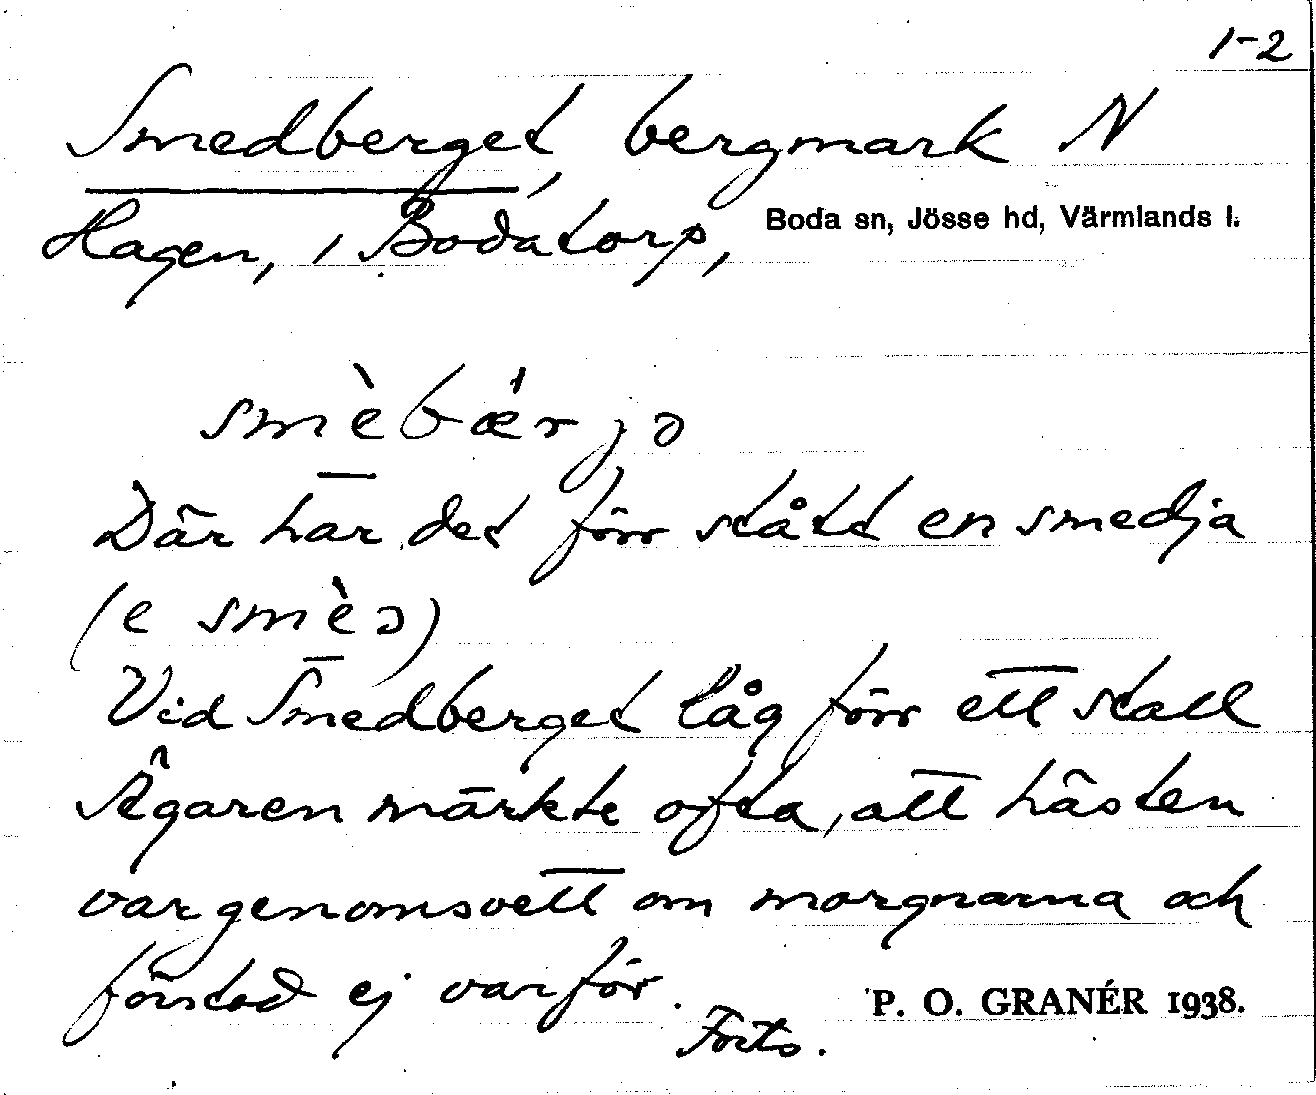 1-2
Smedberget, bergmark N
Hagen, i Bodatorp, Boda sn, Jösse hd, Värmlands l.
smèbǽrjə
Där har det förr stått en smedja
(e smèə)
Vid Smedberget låg förr ett stall
Ägaren märkte ofta, att hästen
var genomsvett om morgnarna och
förstod ej varför.
Forts.
P. O. GRANÉR 1938.